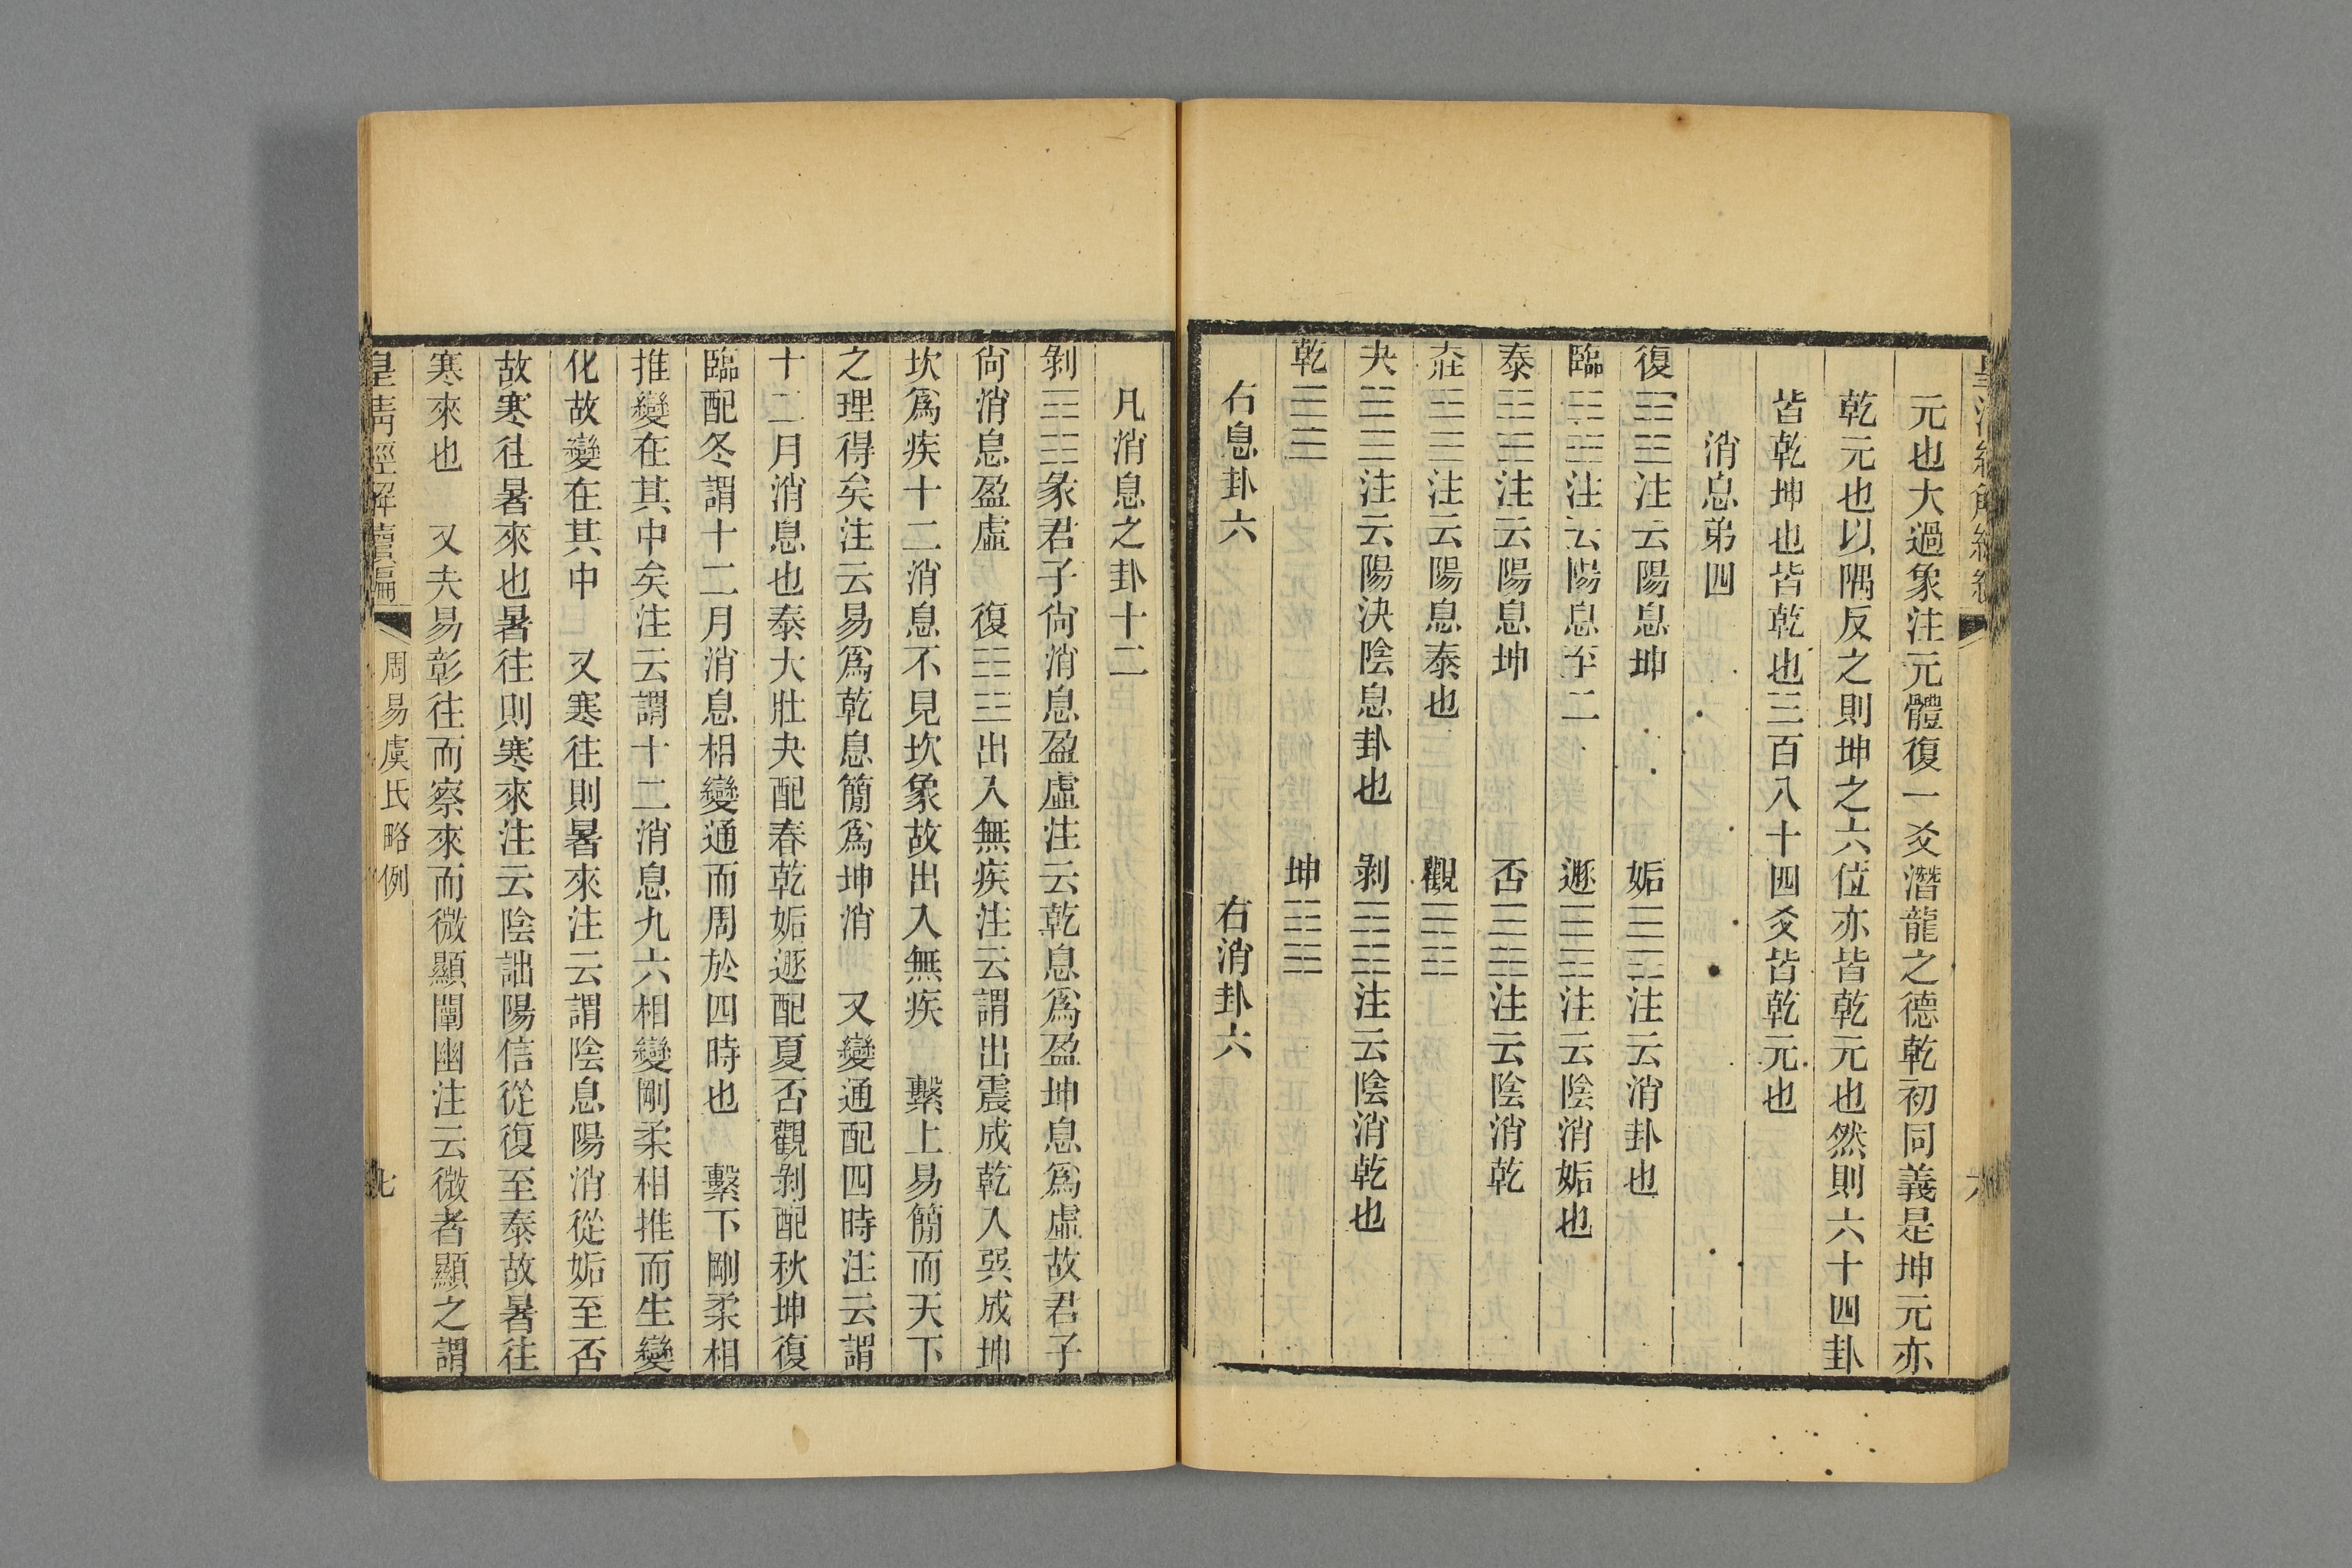 元也大過象注元體復一爻潛龍之德乾初同義是坤元亦
乾元也以隅反之則坤之六位亦皆乾元也然則六十四卦
皆乾坤也皆乾也三百八十四爻皆乾元也
消息弟四
復䷗注云陽息坤 姤䷫注云消卦也
臨䷒注云陽息至二 遯䷠注云陰消姤也
泰䷊注云陽息坤 否䷋注云陰消乾
大壯䷡注云陽息泰也 觀䷓
夬䷪注云陽決陰息卦也 剝䷖注云陰消乾也
乾䷀ 坤䷁
右息卦六 右消卦六
凡消息之卦十二
剝䷖彖君子尙消息盈虛注云乾息爲盈坤息爲虛故君子
尙消息盈虛 復䷗出入無疾注云謂出震成乾入巽成坤
坎爲疾十二消息不見坎象故出入無疾 繫上易簡而天下
之理得矣注云易爲乾息簡爲坤消 又變通配四時注云謂
十二月消息也泰大壯夬配春乾姤遯配夏否觀剝配秋坤復
臨配冬謂十二月消息相變通而周於四時也 繫下剛柔相
推變在其中矣注云謂十二消息九六相變剛柔相推而生變
化故變在其中 又寒往則暑來注云謂陰息陽消從姤至否
故寒往暑來也暑往則寒來注云陰詘陽信從復至泰故暑往
寒來也 又夫易彰往而察來而微顯闡幽注云微者顯之謂
皇清經解續編 周易虞氏略例 七